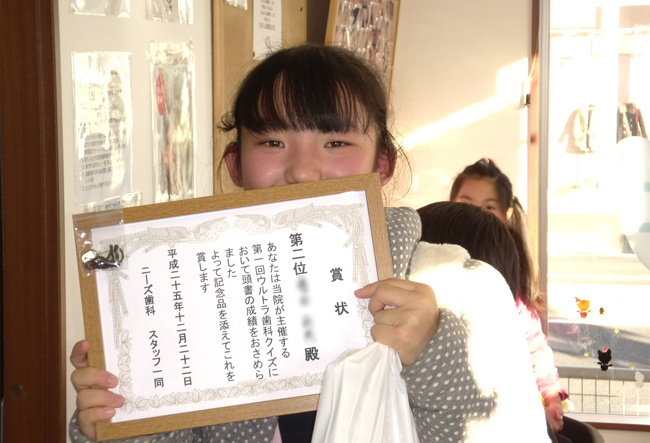 賞状
第二位 殿
あなたは当院が主催する
第一回ウルトラ歯科クイズに
おいて頭書の成績をおさめら
れました
よって記念品を添えてこれを
賞します
平成二十五年十二月二十二日
ニーズ歯科 スタッフ一同